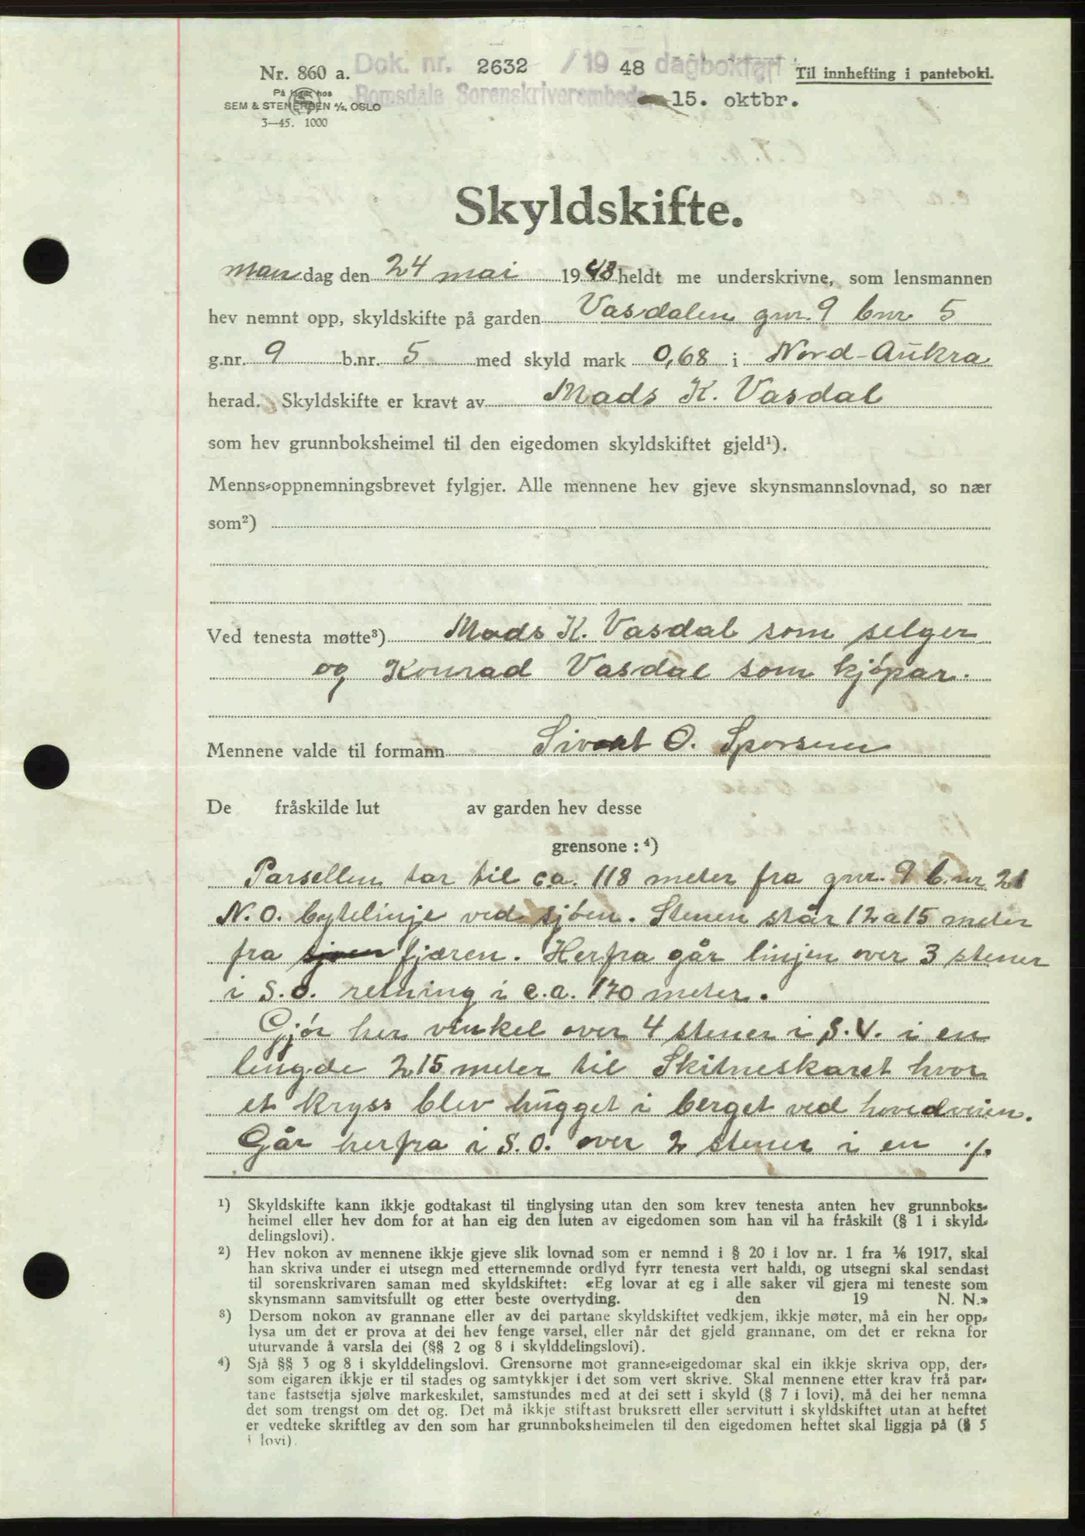 Nr. 860 a. Dok. nr. 2632 /19 48 dagbokført Til innhefting i panteboki.
På lager hos Romsdals Sorenskriverembede 15. oktbr.
SEM & STENERSEN A/S, OSLO
3—45. 1000
Skyldskifte.
man dag den 24 mai 1948 heldt me underskrivne, som lensmannen
hev nemnt opp, skyldskifte på garden Vasdalen gnr. 9 bnr 5
g.nr. 9 b.nr. 5 med skyld mark 0,68 i Nord-Aukra
herad. Skyldskifte er kravt av Mads K. Vasdal
som hev grunnboksheimel til den eigedomen skyldskiftet gjeld¹).
Menns-oppnemningsbrevet fylgjer. Alle mennene hev gjeve skynsmannslovnad, so nær
som²)
Ved tenesta møtte³) Mads K. Vasdal som selger
og Konrad Vasdal som kjøpar.
Mennene valde til formann Sivert O. Sporsem
De fråskilde lut av garden hev desse
grensone : ⁴)
Parsellen tar til ca. 118 meter fra gnr. 9 b.nr 21
N.O. bytelinje ved sjøen. Stenen står 12 a 15 meter
fra sjøen fjæren. Herfra går linjen over 3 stener
i S.O. retning i c.a. 170 meter.
Gjør her vinkel over 4 stener i S.V. i en
lengde 215 meter til Skitneskaret hvor
et kryss blev hugget i berget ved hovedveien.
Går herfra i S.O. over 2 stener i en ./.
¹) Skyldskifte kann ikkje godtakast til tinglysing utan den som krev tenesta anten hev grunnboks-
heimel eller hev dom for at han eig den luten av eigedomen som han vil ha fråskilt (§ 1 i skyld-
delingslovi).
²) Hev nokon av mennene ikkje gjeve slik lovnad som er nemnd i § 20 i lov nr. 1 fra 1/6 1917, skal
han skriva under ei utsegn med etternemnde ordlyd fyrr tenesta vert haldi, og utsegni skal sendast
til sorenskrivaren saman med skyldskiftet: «Eg lovar at eg i alle saker vil gjera mi teneste som
skynsmann samvitsfullt og etter beste overtyding. den 19 N. N.»
³) Dersom nokon av grannane eller av dei partane skyldskiftet vedkjem, ikkje møter, må ein her opp-
lysa um det er prova at dei hev fenge varsel, eller når det gjeld grannane, om det er rekna for
uturvande å varsla dei (§§ 2 og 8 i skylddelingslovi).
⁴) Sjå §§ 3 og 8 i skylddelingslovi. Grensorne mot granne-eigedomar skal ein ikkje skriva opp, der-
som eigaren ikkje er til stades og samtykkjer i det som vert skrive. Skal mennene etter krav frå par-
tane fastsetja sjølve markeskilet, samstundes med at dei sett i skyld (§ 7 i lovi), må dei her nemna
det som trengst om det og. Det må ikkje stiftast bruksrett eller servitutt i skyldskiftet utan at heftet
er vedteke skriftleg av den som har grunnboksheimelen til den eigedomen heftet skal liggja på (§ 5
i lovi).